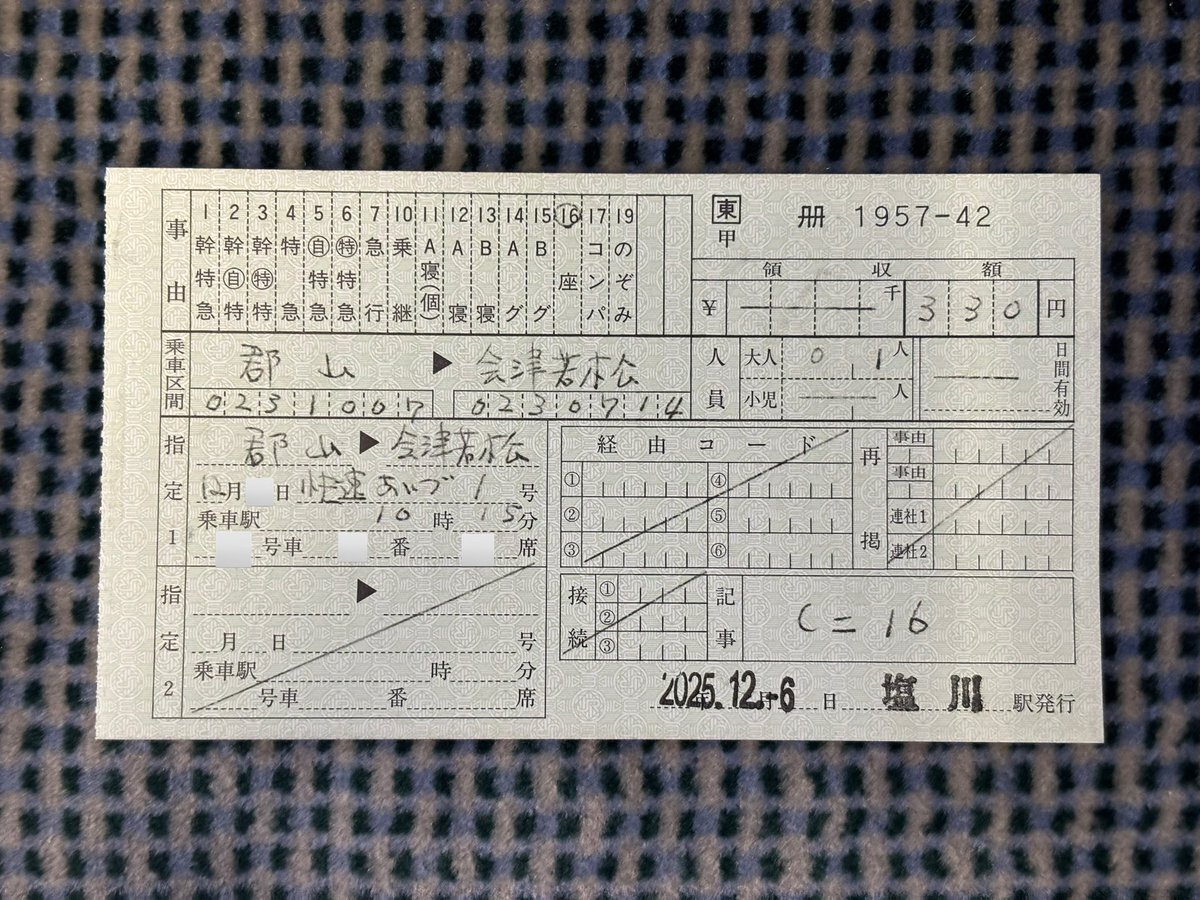 事由
1 幹特急
2 幹自特
3 幹特特
4 特急
5 自特急
6 特特急
7 急行
10 乗継
11 A寝(個)
12 A寝
13 B寝
14 Aグ
15 Bグ
16 座
17 コンパ
19 のぞみ
東 甲
册 1957-42
領収額
¥ 千 330 円
乗車区間
郡山 ▶ 会津若松
0231007 0230714
人員
大人 01人
小児 人
日間有効
指定1
郡山 ▶ 会津若松
12月 日 快速あいづ 1号
乗車駅 10時15分
号車 番 席
指定2
▶
月 日 号
乗車駅 時 分
号車 番 席
経由コード
① ④
② ⑤
③ ⑥
再掲
事由
事由
連社1
連社2
接続
①
②
③
記事
C=16
2025.12.-6 年月日 塩川 駅発行